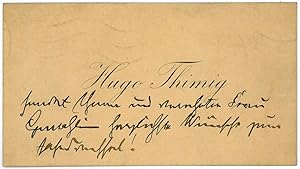 Hugo Thimig
sendet Ihnen und verehrten Frau
Gemahlin herzlichste Wünsche zum
Jahreswechsel!